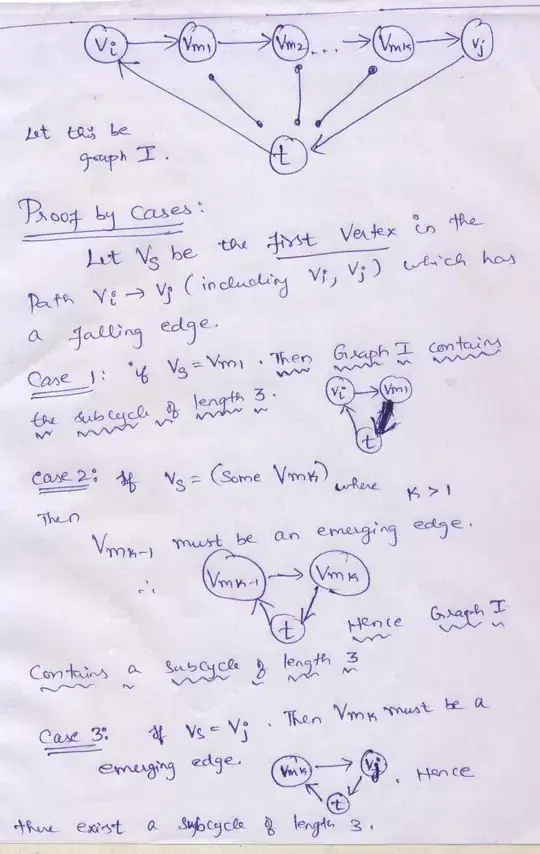 Vi Vm1 Vm2 ... Vmk Vj
t
Let this be
graph I.
Proof by Cases:
Let Vs be the first Vertex in the
Path Vi → Vj (including Vi, Vj) which has
a falling edge.
Case 1: if Vs = Vm1. Then Graph I contains
the subcycle of length 3.
Vi Vm1
t
Case 2: If Vs = (Some Vmk) where K > 1
Then
Vmk-1 must be an emerging edge.
∴ Vmk-1 Vmk
t
Hence Graph I
Contains a subcycle of length 3
Case 3: If Vs = Vj. Then Vmk must be a
emerging edge.
Vmk Vj. Hence
t
there exist a subcycle of length 3.